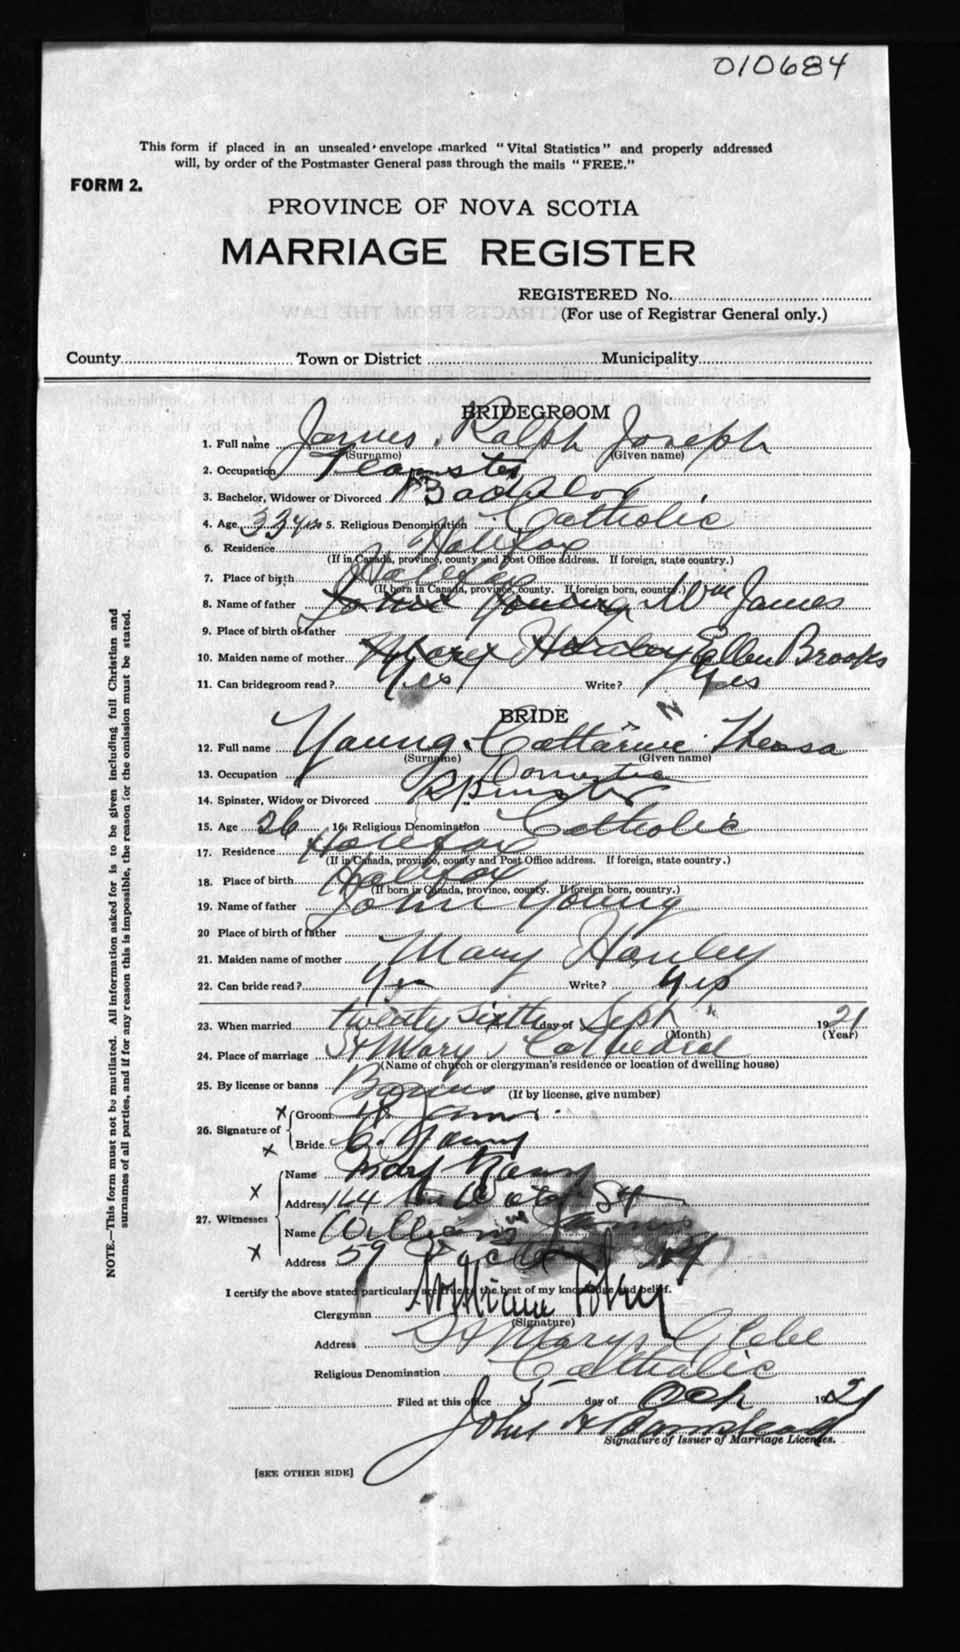 010684
This form if placed in an unsealed envelope marked "Vital Statistics" and properly addressed
will, by order of the Postmaster General pass through the mails "FREE."
FORM 2.
PROVINCE OF NOVA SCOTIA
MARRIAGE REGISTER
REGISTERED No.
(For use of Registrar General only.)
County Town or District Municipality
BRIDEGROOM
1. Full name James, Ralph Joseph
(Surname) (Given name)
2. Occupation Teamster
3. Bachelor, Widower or Divorced Bachelor
4. Age 33 yrs 5. Religious Denomination Catholic
6. Residence Halifax
(If in Canada, province, county and Post Office address. If foreign, state country.)
7. Place of birth Halifax
(If born in Canada, province, county. If foreign born, country.)
8. Name of father John Young Wm James
9. Place of birth of father
10. Maiden name of mother Mary Hanley Ellen Brooks
11. Can bridegroom read? Yes Write? Yes
BRIDE
12. Full name Young, Catherine Theresa
(Surname) (Given name)
13. Occupation Domestic
14. Spinster, Widow or Divorced Spinster
15. Age 26 16. Religious Denomination Catholic
17. Residence Halifax
(If in Canada, province, county and Post Office address. If foreign, state country.)
18. Place of birth Halifax
(If born in Canada, province, county. If foreign born, country.)
19. Name of father John Young
20 Place of birth of father
21. Maiden name of mother Mary Hanley
22. Can bride read? Yes Write? Yes
23. When married twenty sixth day of Sept 1921
(Month) (Year)
24. Place of marriage St Mary's Cathedral
(Name of church or clergyman's residence or location of dwelling house)
25. By license or banns Banns (If by license, give number)
26. Signature of
x Groom R. James
x Bride C. Young
27. Witnesses
Name Mary Young
x Address 164 Water St
Name William James
x Address 59
I certify the above stated particulars are true to the best of my knowledge and belief.
Clergyman William Foley
(Signature)
Address St Mary's Glebe
Religious Denomination Catholic
Filed at this office 5 day of Oct 1921
John H Barnstead
Signature of Issuer of Marriage Licenses.
[SEE OTHER SIDE]
NOTE.—This form must not be mutilated. All information asked for is to be given including full Christian and
surnames of all parties, and if for any reason this is impossible, the reason for the omission must be stated.